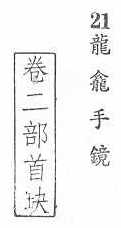 21龍龕手鏡
卷二部首块